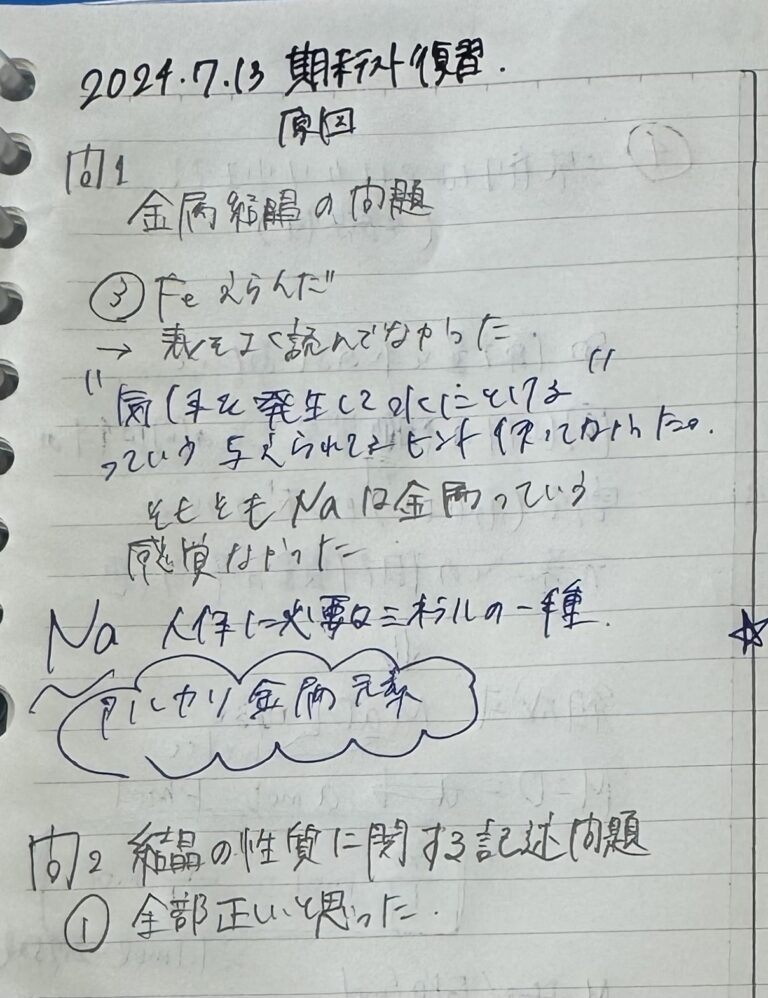 2024.7.13 期末テスト復習.
原因
問1
金属結晶の問題
③ Fe えらんだ
→ 表をよく読んでなかった.
"気体を発生して水にとける"
っていう与えられてるヒント使ってなかった。
そもそもNaは金属っていう
感覚なかった
Na 人体に必要なミネラルの一種.
☆
アルカリ金属元素
問2 結晶の性質に関する記述問題
① 全部正しいと思った.